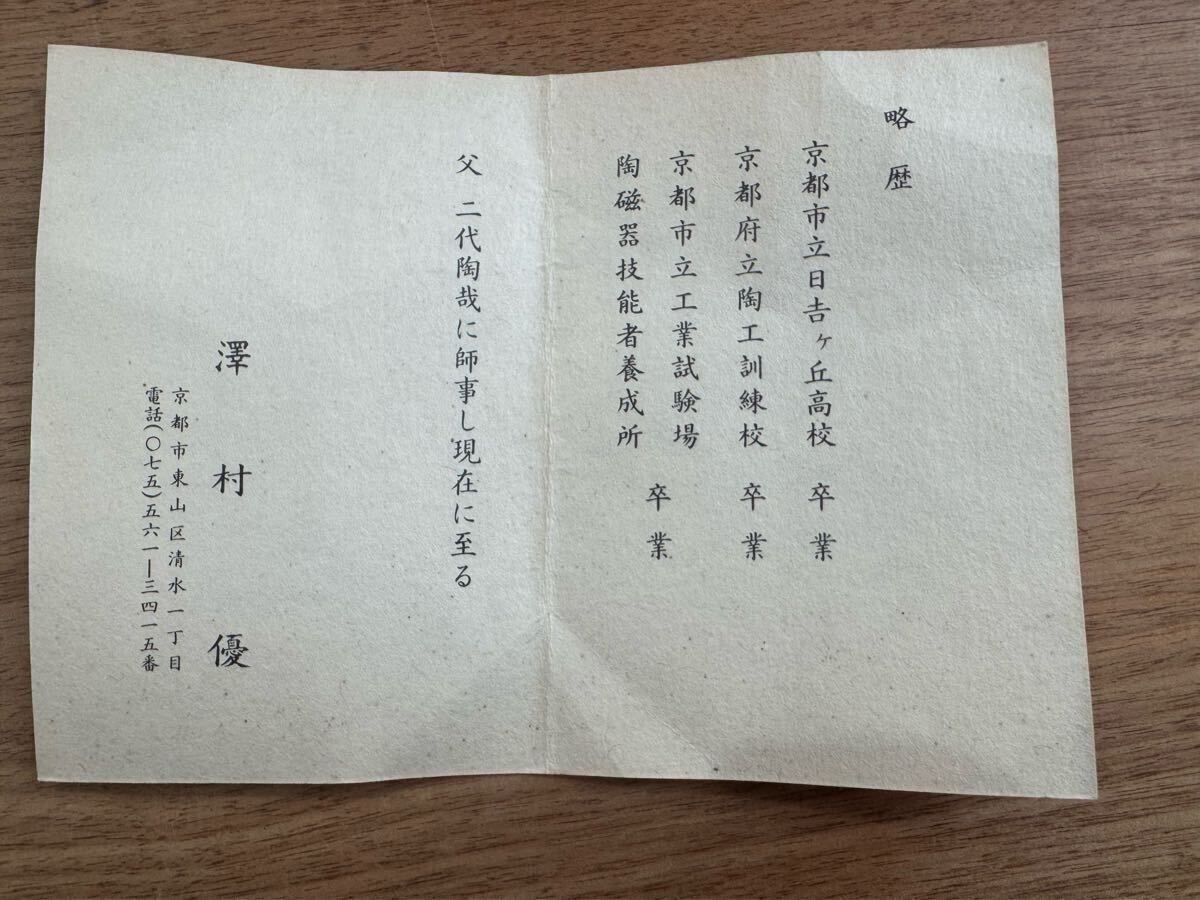 略歴
京都市立日吉ヶ丘高校 卒業
京都府立陶工訓練校 卒業
京都市立工業試験場
陶磁器技能者養成所
卒業
父 二代陶哉に師事し現在に至る
澤村 優
京都市東山区清水一丁目
電話(〇七五)五六一―三四一五番